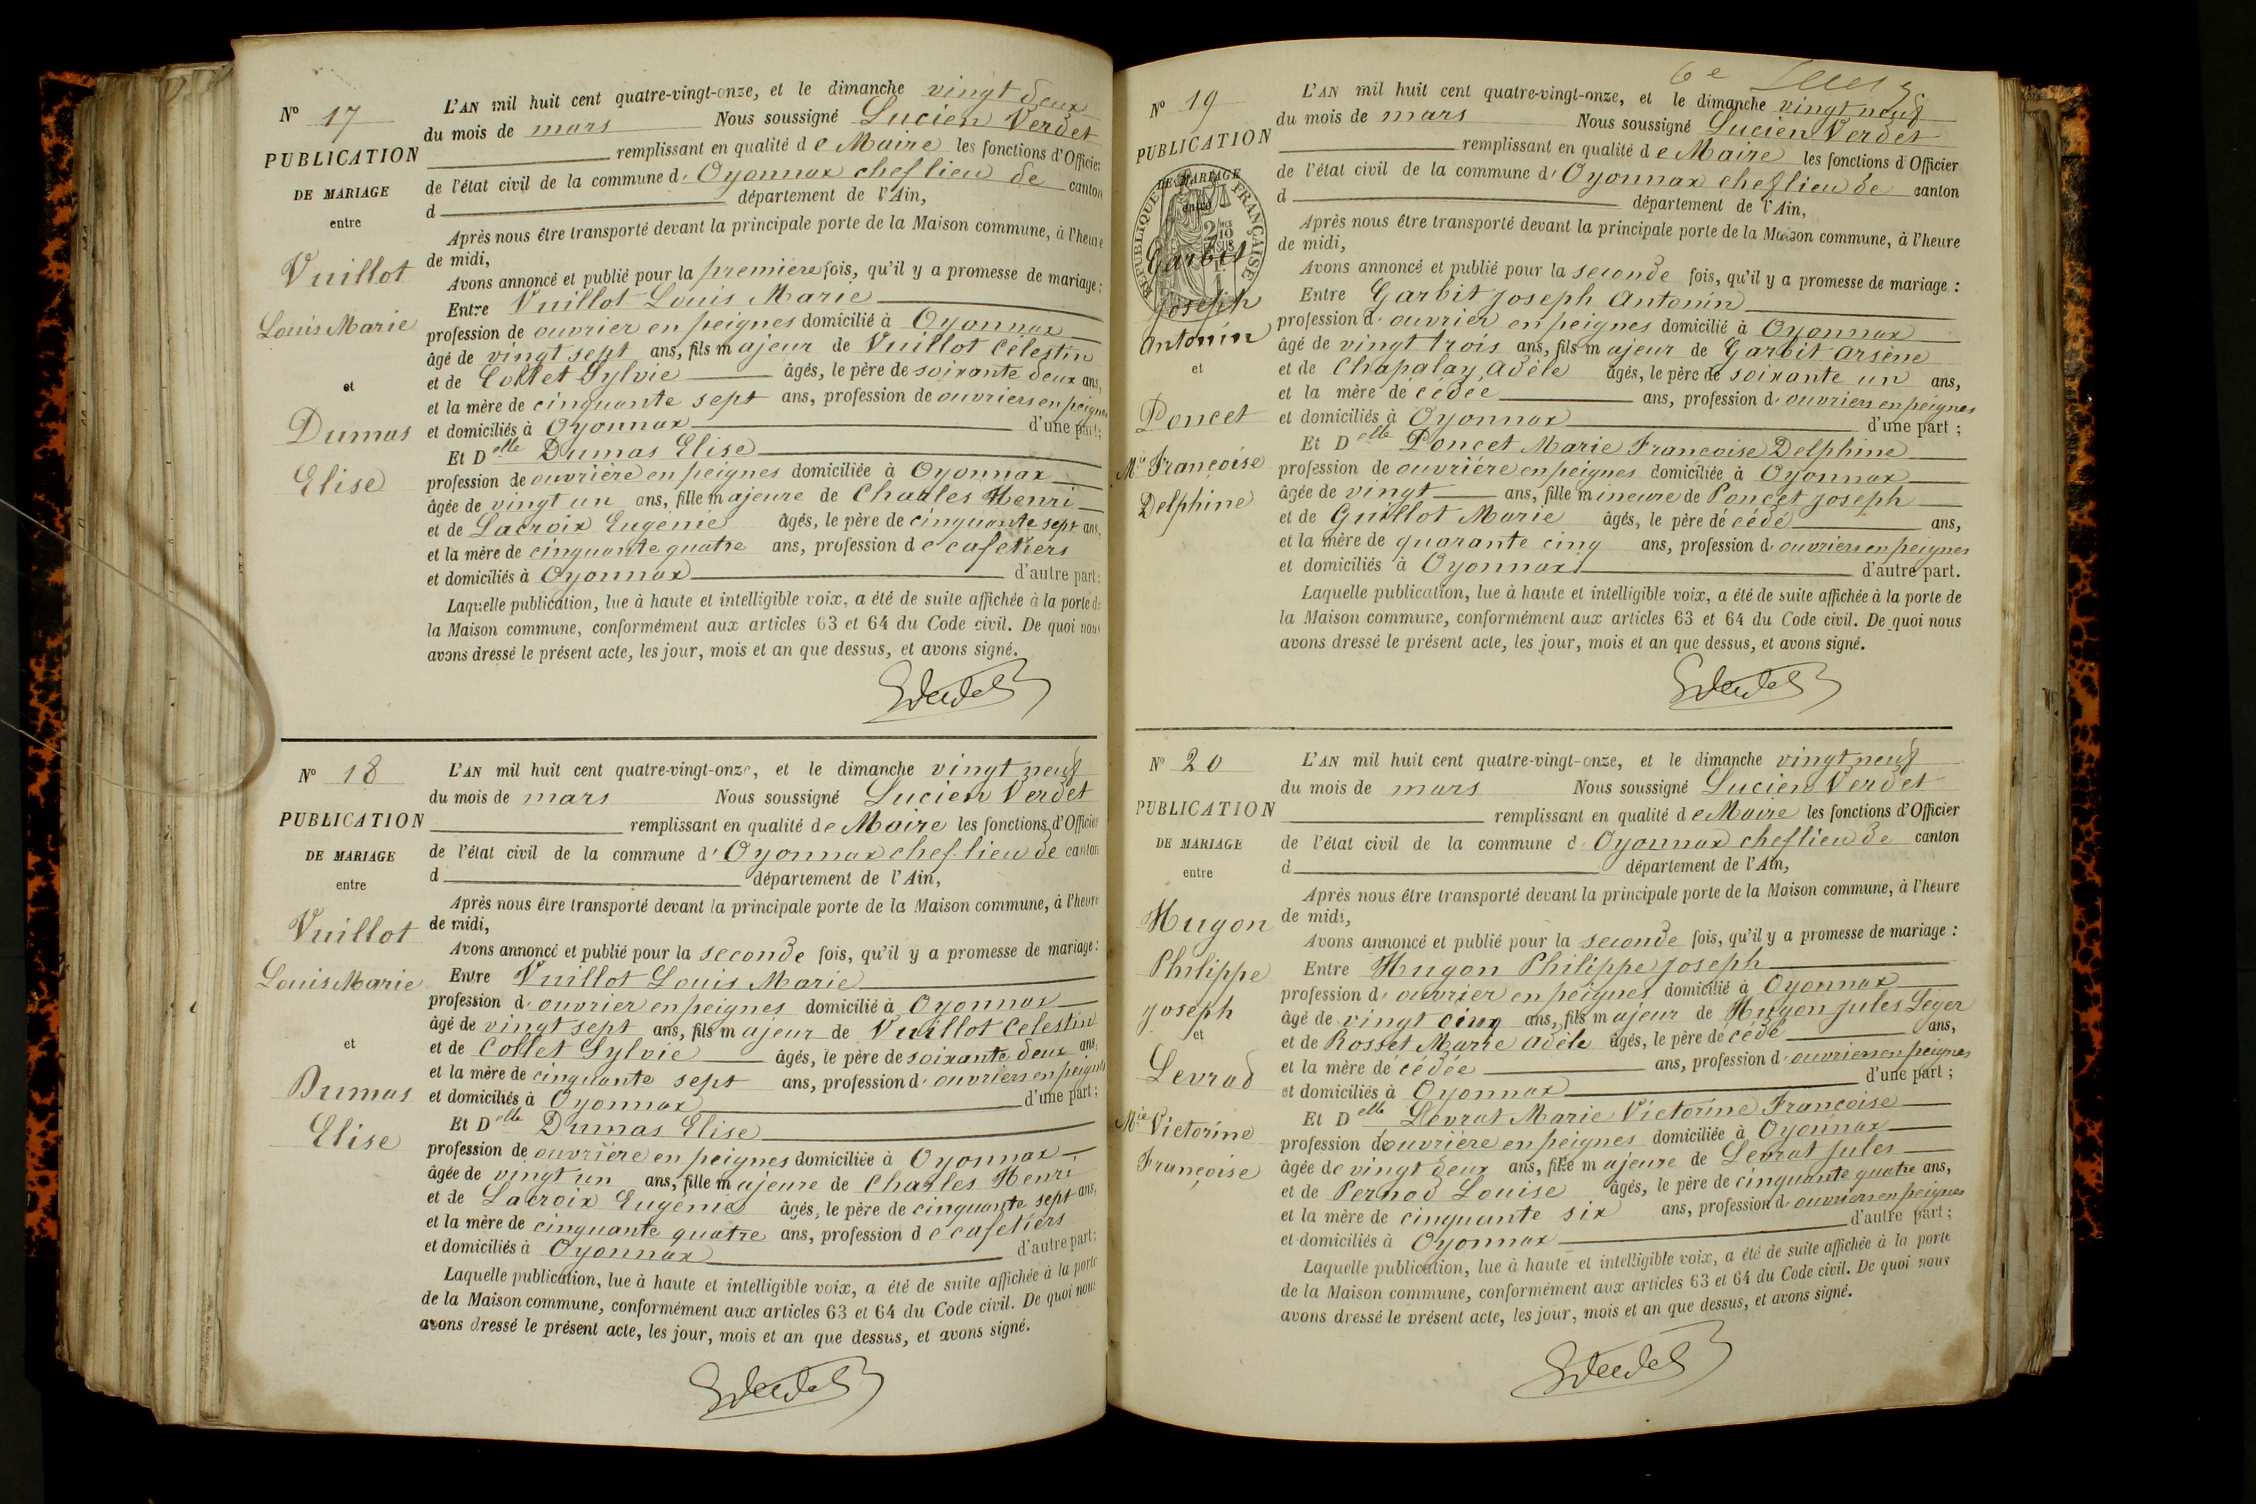 Nº 17
PUBLICATION
DE MARIAGE
entre
Vuillot
Louis Marie
et
Dumas
Elise
L'AN mil huit cent quatre-vingt-onze, et le dimanche vingt deux
du mois de mars Nous soussigné Lucien Verdet
remplissant en qualité de Maire les fonctions d'Officier
de l'état civil de la commune d' Oyonnax chef lieu de canton
d département de l'Ain,
Après nous être transporté devant la principale porte de la Maison commune, à l'heure
de midi,
Avons annoncé et publié pour la première fois, qu'il y a promesse de mariage :
Entre Vuillot Louis Marie
profession de ouvrier en peignes domicilié à Oyonnax
âgé de vingt sept ans, fils majeur de Vuillot Célestin
et de Collet Sylvie âgés, le père de soixante deux ans,
et la mère de cinquante sept ans, profession de ouvriers en peignes
et domiciliés à Oyonnax d'une part;
Et Delle Dumas Elise
profession de ouvrière en peignes domiciliée à Oyonnax
âgée de vingt un ans, fille majeure de Charles Henri
et de Lacroix Eugénie âgés, le père de cinquante sept ans,
et la mère de cinquante quatre ans, profession de cafetiers
et domiciliés à Oyonnax d'autre part:
Laquelle publication, lue à haute et intelligible voix, a été de suite affichée à la porte de
la Maison commune, conformément aux articles 63 et 64 du Code civil. De quoi nous
avons dressé le présent acte, les jour, mois et an que dessus, et avons signé.
Nº 18
PUBLICATION
DE MARIAGE
entre
Vuillot
Louis Marie
et
Dumas
Elise
L'AN mil huit cent quatre-vingt-onze, et le dimanche vingt neuf
du mois de mars Nous soussigné Lucien Verdet
remplissant en qualité de Maire les fonctions d'Officier
de l'état civil de la commune d' Oyonnax chef-lieu de canton
d département de l'Ain,
Après nous être transporté devant la principale porte de la Maison commune, à l'heure
de midi,
Avons annoncé et publié pour la seconde fois, qu'il y a promesse de mariage :
Entre Vuillot Louis Marie
profession d' ouvrier en peignes domicilié à Oyonnax
âgé de vingt sept ans, fils majeur de Vuillot Celestin
et de Collet Sylvie âgés, le père de soixante deux ans,
et la mère de cinquante sept ans, profession d' ouvriers en peignes
et domiciliés à Oyonnax d'une part;
Et Delle Dumas Elise
profession de ouvrière en peignes domiciliée à Oyonnax
âgée de vingt un ans, fille majeure de Charles Henri
et de Lacroix Eugénie âgés, le père de cinquante sept ans,
et la mère de cinquante quatre ans, profession de cafetiers
et domiciliés à Oyonnax d'autre part:
Laquelle publication, lue à haute et intelligible voix, a été de suite affichée à la porte
de la Maison commune, conformément aux articles 63 et 64 du Code civil. De quoi nous
avons dressé le présent acte, les jour, mois et an que dessus, et avons signé.
6e
Nº 19
PUBLICATION
DE MARIAGE
entre
RÉPUBLIQUE FRANÇAISE
Garbit
Joseph
Antonin
et
Poncet
Mie Françoise
Delphine
L'AN mil huit cent quatre-vingt-onze, et le dimanche vingt neuf
du mois de mars Nous soussigné Lucien Verdet
remplissant en qualité de Maire les fonctions d'Officier
de l'état civil de la commune d' Oyonnax chef lieu de canton
d département de l'Ain,
Après nous être transporté devant la principale porte de la Maison commune, à l'heure
de midi,
Avons annoncé et publié pour la seconde fois, qu'il y a promesse de mariage :
Entre Garbit Joseph Antonin
profession d' ouvrier en peignes domicilié à Oyonnax
âgé de vingt trois ans, fils majeur de Garbit Arsène
et de Chapalay Adèle âgés, le père de soixante un ans,
et la mère décédée ans, profession d' ouvriers en peignes
et domiciliés à Oyonnax d'une part ;
Et Delle Poncet Marie Françoise Delphine
profession de ouvrière en peignes domiciliée à Oyonnax
âgée de vingt ans, fille mineure de Poncet Joseph
et de Guillot Marie âgés, le père décédé ans,
et la mère de quarante cinq ans, profession d' ouvriers en peignes
et domiciliés à Oyonnax d'autre part.
Laquelle publication, lue à haute et intelligible voix, a été de suite affichée à la porte de
la Maison commune, conformément aux articles 63 et 64 du Code civil. De quoi nous
avons dressé le présent acte, les jour, mois et an que dessus, et avons signé.
Nº 20
PUBLICATION
DE MARIAGE
entre
Hugon
Philippe
Joseph
et
Levrad
Mie Victorine
Françoise
L'AN mil huit cent quatre-vingt-onze, et le dimanche vingt neuf
du mois de mars Nous soussigné Lucien Verdet
remplissant en qualité de Maire les fonctions d'Officier
de l'état civil de la commune d' Oyonnax chef lieu de canton
d département de l'Ain,
Après nous être transporté devant la principale porte de la Maison commune, à l'heure
de midi,
Avons annoncé et publié pour la seconde fois, qu'il y a promesse de mariage :
Entre Hugon Philippe Joseph
profession d' ouvrier en peignes domicilié à Oyonnax
âgé de vingt cinq ans, fils majeur de Hugon Jules Léger
et de Rosset Marie Adèle âgés, le père décédé ans,
et la mère décédée ans, profession d' ouvriers en peignes
et domiciliés à Oyonnax d'une part ;
Et Delle Levrat Marie Victorine Françoise
profession d'ouvrière en peignes domiciliée à Oyonnax
âgée de vingt deux ans, fille majeure de Levrat Jules
et de Pernod Louise âgés, le père de cinquante quatre ans,
et la mère de cinquante six ans, profession d' ouvriers en peignes
et domiciliés à Oyonnax d'autre part;
Laquelle publication, lue à haute et intelligible voix, a été de suite affichée à la porte
de la Maison commune, conformément aux articles 63 et 64 du Code civil. De quoi nous
avons dressé le présent acte, les jour, mois et an que dessus, et avons signé.